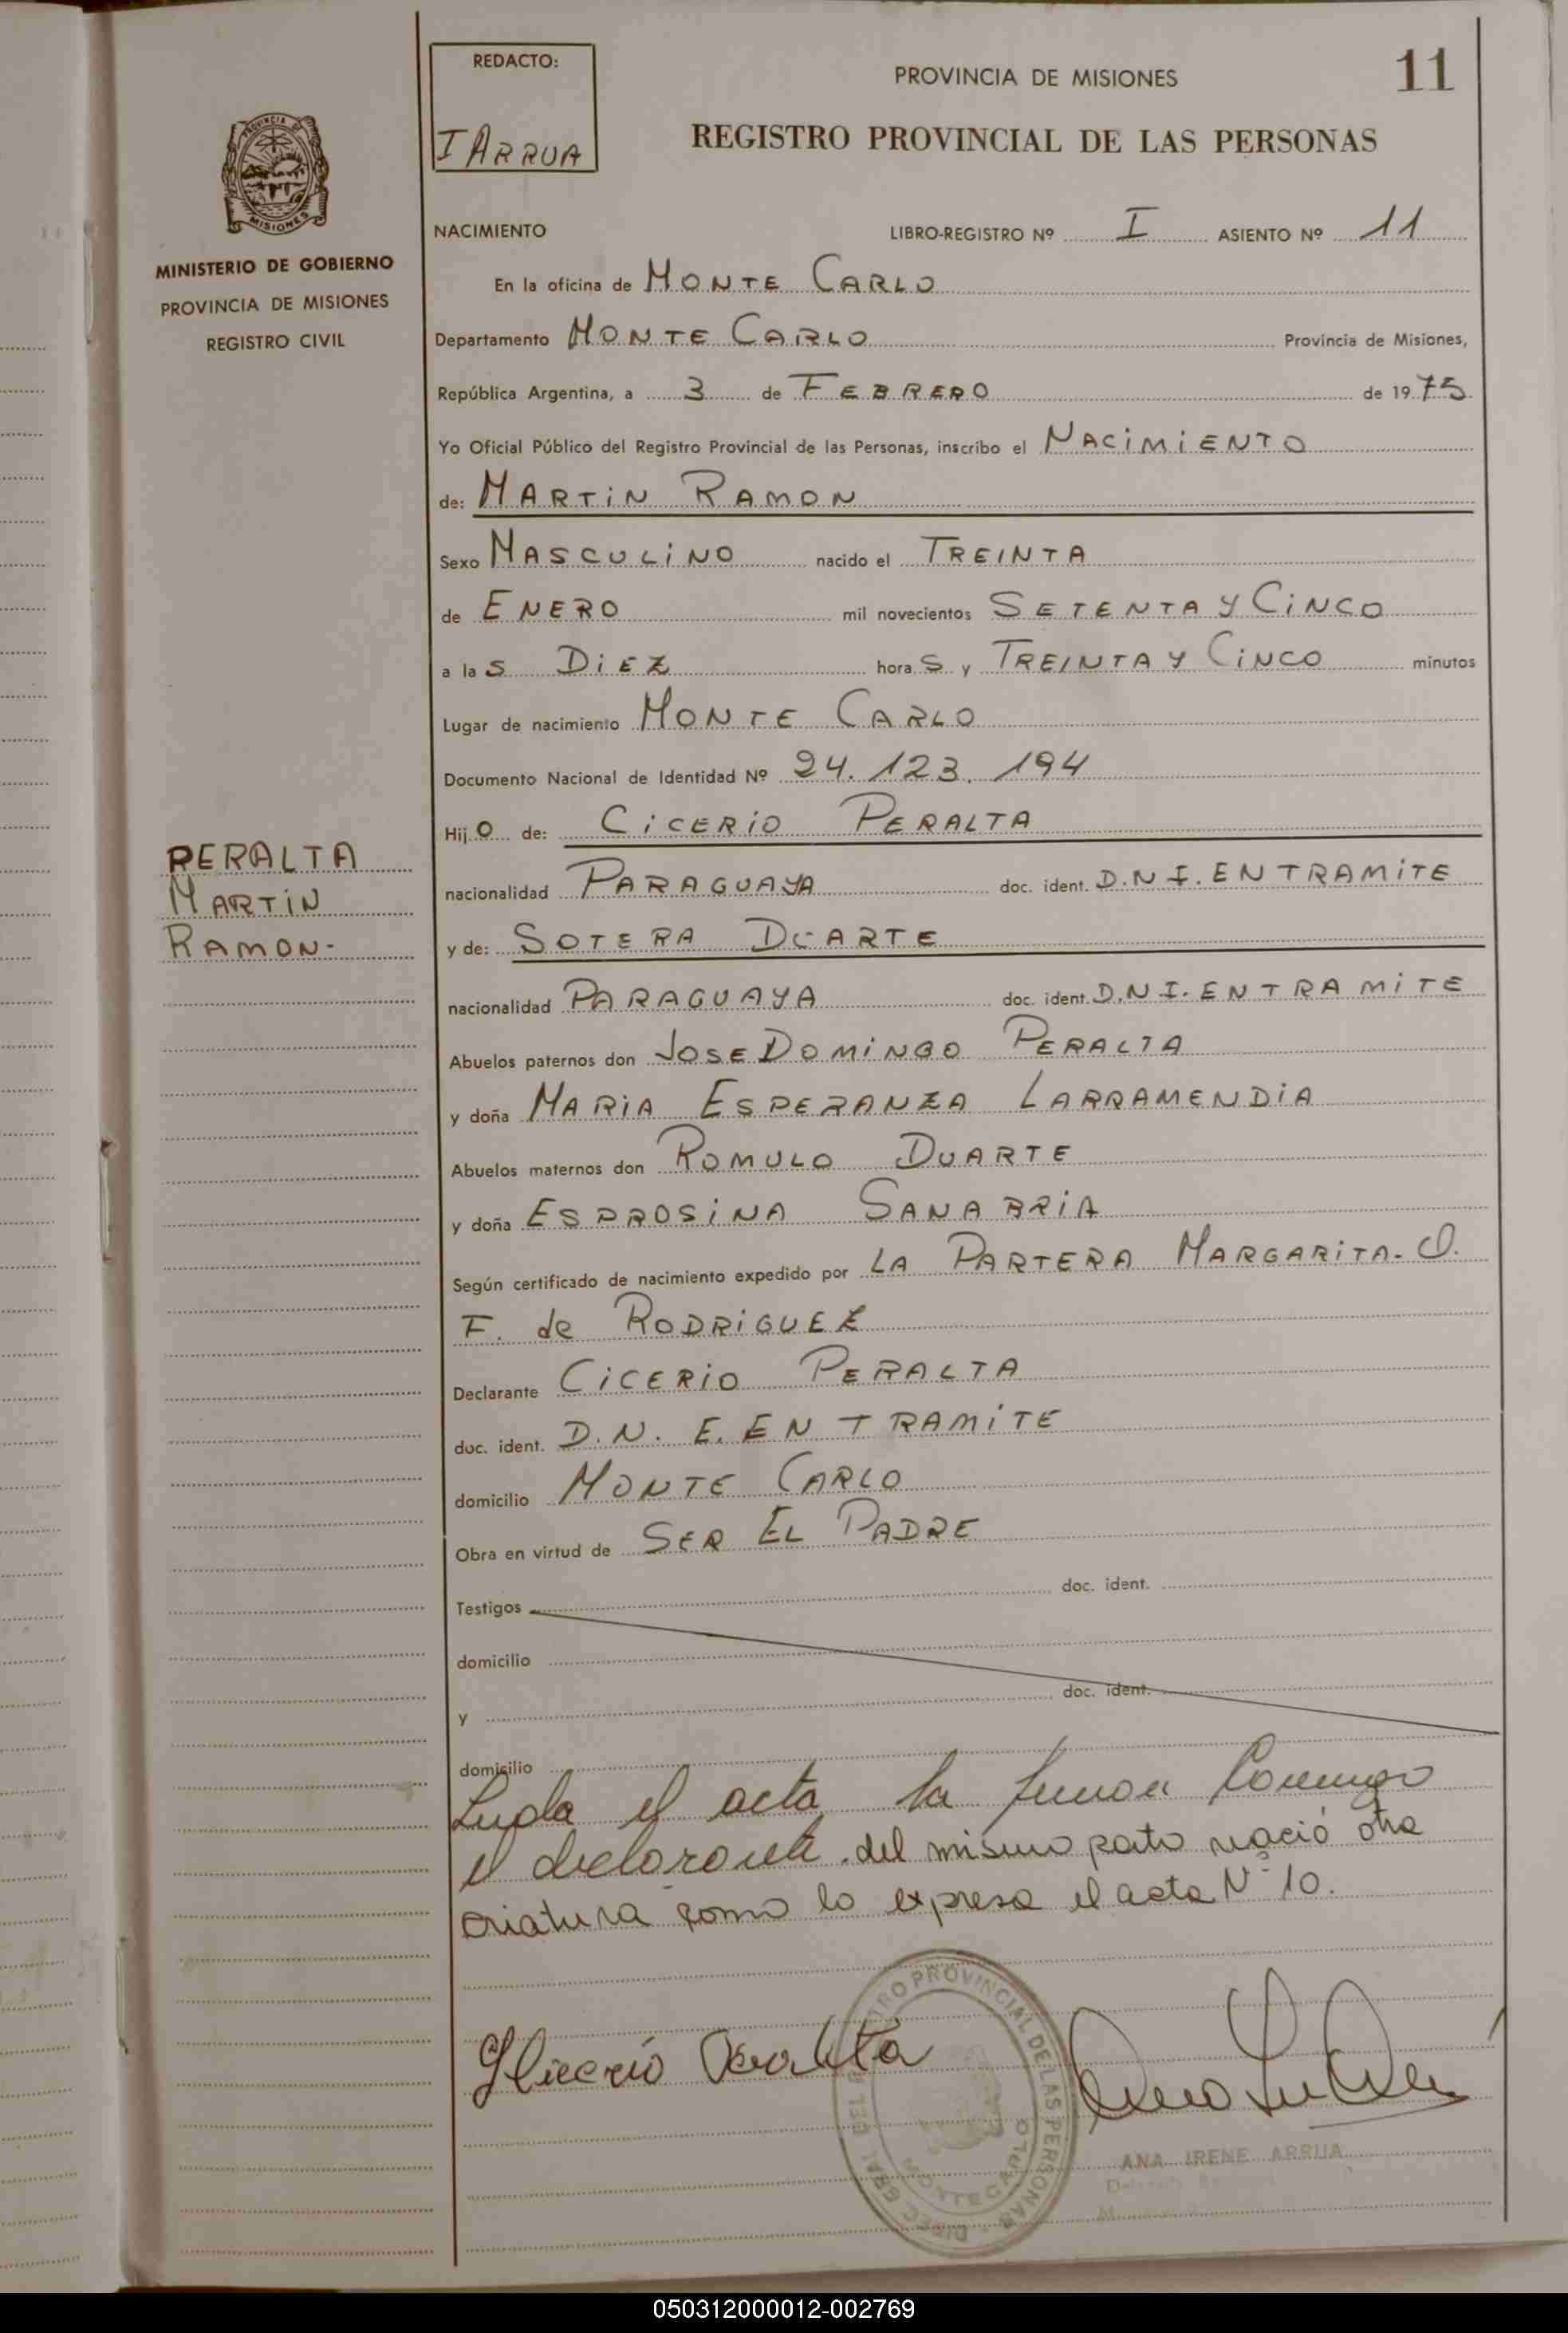 REDACTO:
I ARRUA
PROVINCIA DE MISIONES
11
REGISTRO PROVINCIAL DE LAS PERSONAS
PROVINCIA DE
MISIONES
MINISTERIO DE GOBIERNO
PROVINCIA DE MISIONES
REGISTRO CIVIL
NACIMIENTO LIBRO-REGISTRO Nº I ASIENTO Nº 11
En la oficina de MONTE CARLO
Departamento MONTE CARLO Provincia de Misiones,
República Argentina, a 3 de FEBRERO de 1975
Yo Oficial Público del Registro Provincial de las Personas, inscribo el NACIMIENTO
de: MARTIN RAMON
Sexo MASCULINO nacido el TREINTA
de ENERO mil novecientos SETENTA Y CINCO
a las DIEZ horas y TREINTA Y CINCO minutos
Lugar de nacimiento MONTE CARLO
Documento Nacional de Identidad Nº 24.123.194
Hijo de: CICERIO PERALTA
PERALTA
MARTIN
RAMON-
nacionalidad PARAGUAYA doc. ident. D.N.I. EN TRAMITE
y de: SOTERA DUARTE
nacionalidad PARAGUAYA doc. ident. D.N.I. EN TRAMITE
Abuelos paternos don JOSE DOMINGO PERALTA
y doña MARIA ESPERANZA LARRAMENDIA
Abuelos maternos don ROMULO DUARTE
y doña ESPROSINA SANABRIA
Según certificado de nacimiento expedido por LA PARTERA MARGARITA- O.
F. de RODRIGUEZ
Declarante CICERIO PERALTA
doc. ident. D.N.E. EN TRAMITE
domicilio MONTE CARLO
Obra en virtud de SER EL PADRE
Testigos doc. ident.
domicilio
y doc. ident.
domicilio
Leida el acta la firma conmigo
el declarante. del mismo parto nació otra
criatura como lo expresa el acta Nº 10.
Glicerio Peralta
DIREC GRAL DEL REGISTRO PROVINCIAL DE LAS PERSONAS
MONTECARLO
ANA IRENE ARRUA
050312000012-002769